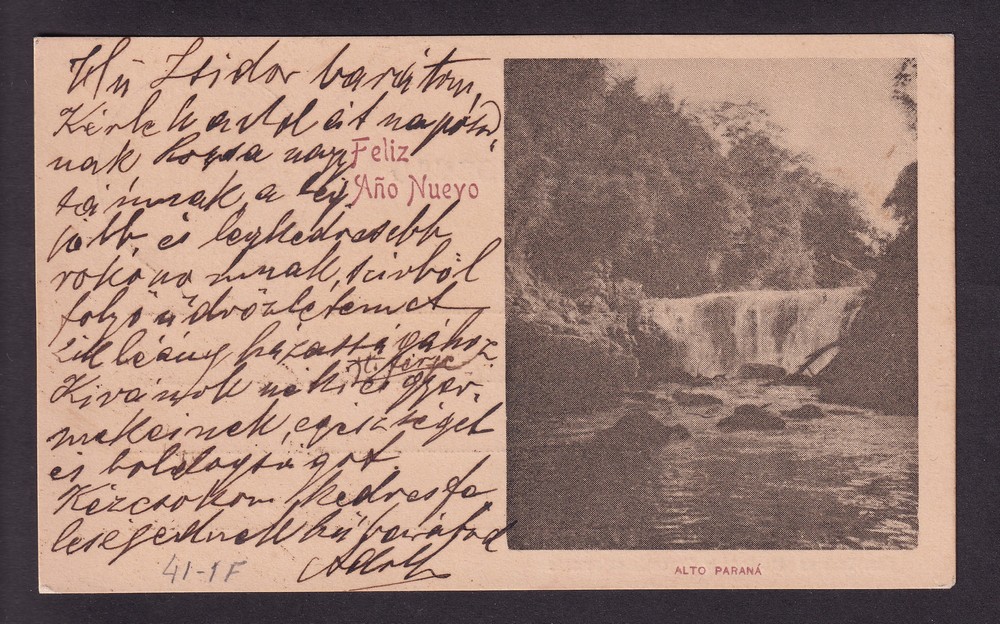 Hű Izidor barátom,
Kérlek add át napód-
nak hozsa nagy
támnak, a leg-
jobb és legkedvesebb
rokonomnak, szívből
folyó üdvözletemet
leány házasságához
férje
Kivánok neki és gyer-
mekeinek, egészséget
és boldogságot.
Kézcsokom kedves fe-
leségednek hű barátod
Adolf
Feliz
Año Nuevo
41-1F
ALTO PARANÁ